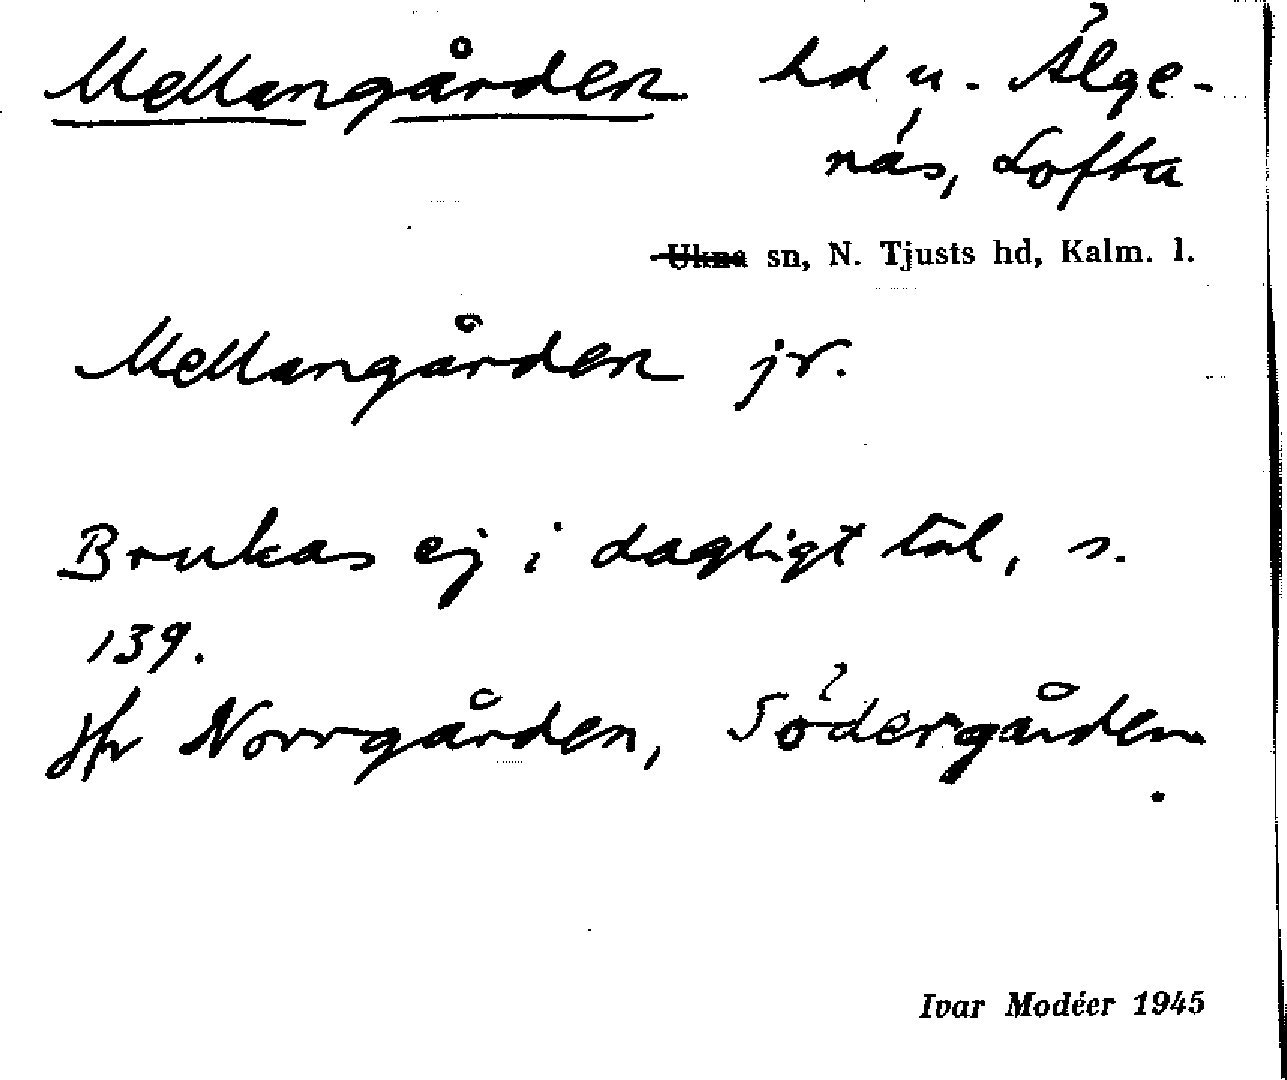 Mellangården hd u. Älge-
näs, Lofta
Ukna sn, N. Tjusts hd, Kalm. l.
Mellangården jr.
Brukas ej i dagligt tal, s.
139.
Jfr Norrgården, Södergården.
Ivar Modéer 1945